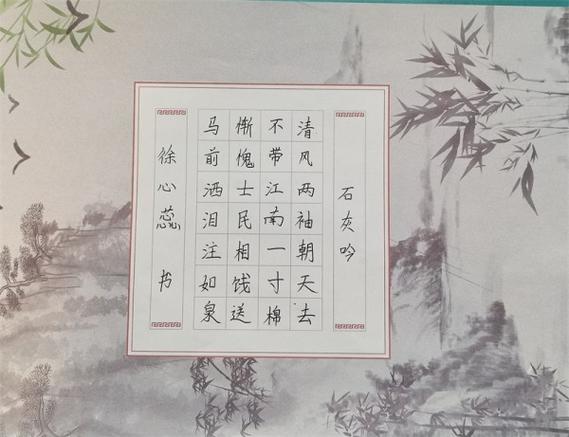 石灰吟
清风两袖朝天去
不带江南一寸棉
惭愧士民相饯送
马前洒泪注如泉
徐心蕊 书